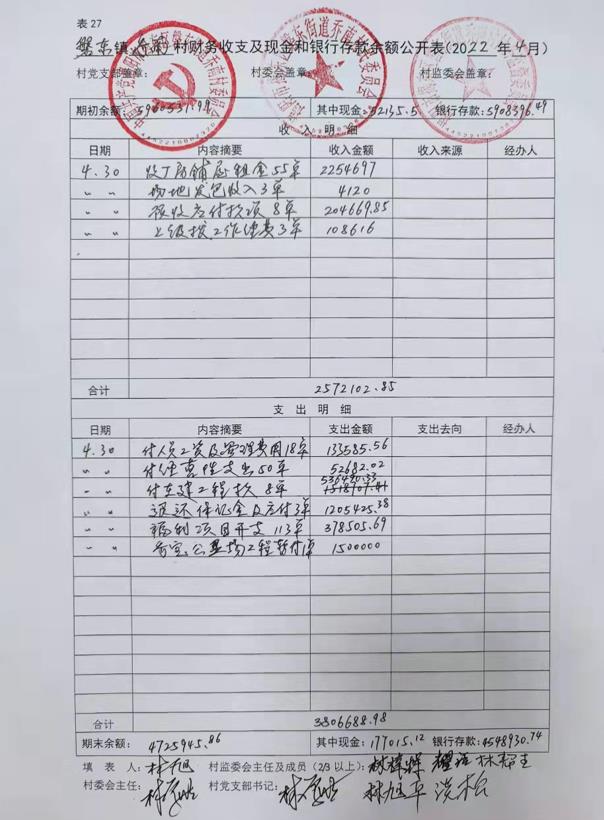 表 27
磐东镇乔南村财务收支及现金和银行存款余额公开表(2022年4月)
村党支部盖章: 村委会盖章: 村监委会盖章:
期初余额: 5960531.99 其中现金: 52135.5 银行存款: 5908396.49
收 入 明 细
日期 内容摘要 收入金额 收入来源 经办人
4.30 收厂房铺屋租金55单 2254697
〃 〃 场地发包收入3单 4120
〃 〃 预收应付款项8单 204669.85
〃 〃 上级拨工作经费3单 108616
合计 2572102.85
支 出 明 细
日期 内容摘要 支出金额 支出去向 经办人
4.30 付人员工资及管理费用18单 133585.56
〃 〃 付经营性支出50单 52682.02
〃 〃 付在建工程款8单 536490.33
〃 〃 退还保证金及应付3单 1205425.38
〃 〃 福利项目开支113单 378505.69
〃 〃 公墓场工程暂付1单 1500000
合计 3806688.98
期末余额: 4725945.86 其中现金: 177015.12 银行存款: 4548930.74
填 表 人: 林旭 村监委会主任及成员(2/3 以上):
村委会主任: 村党支部书记: